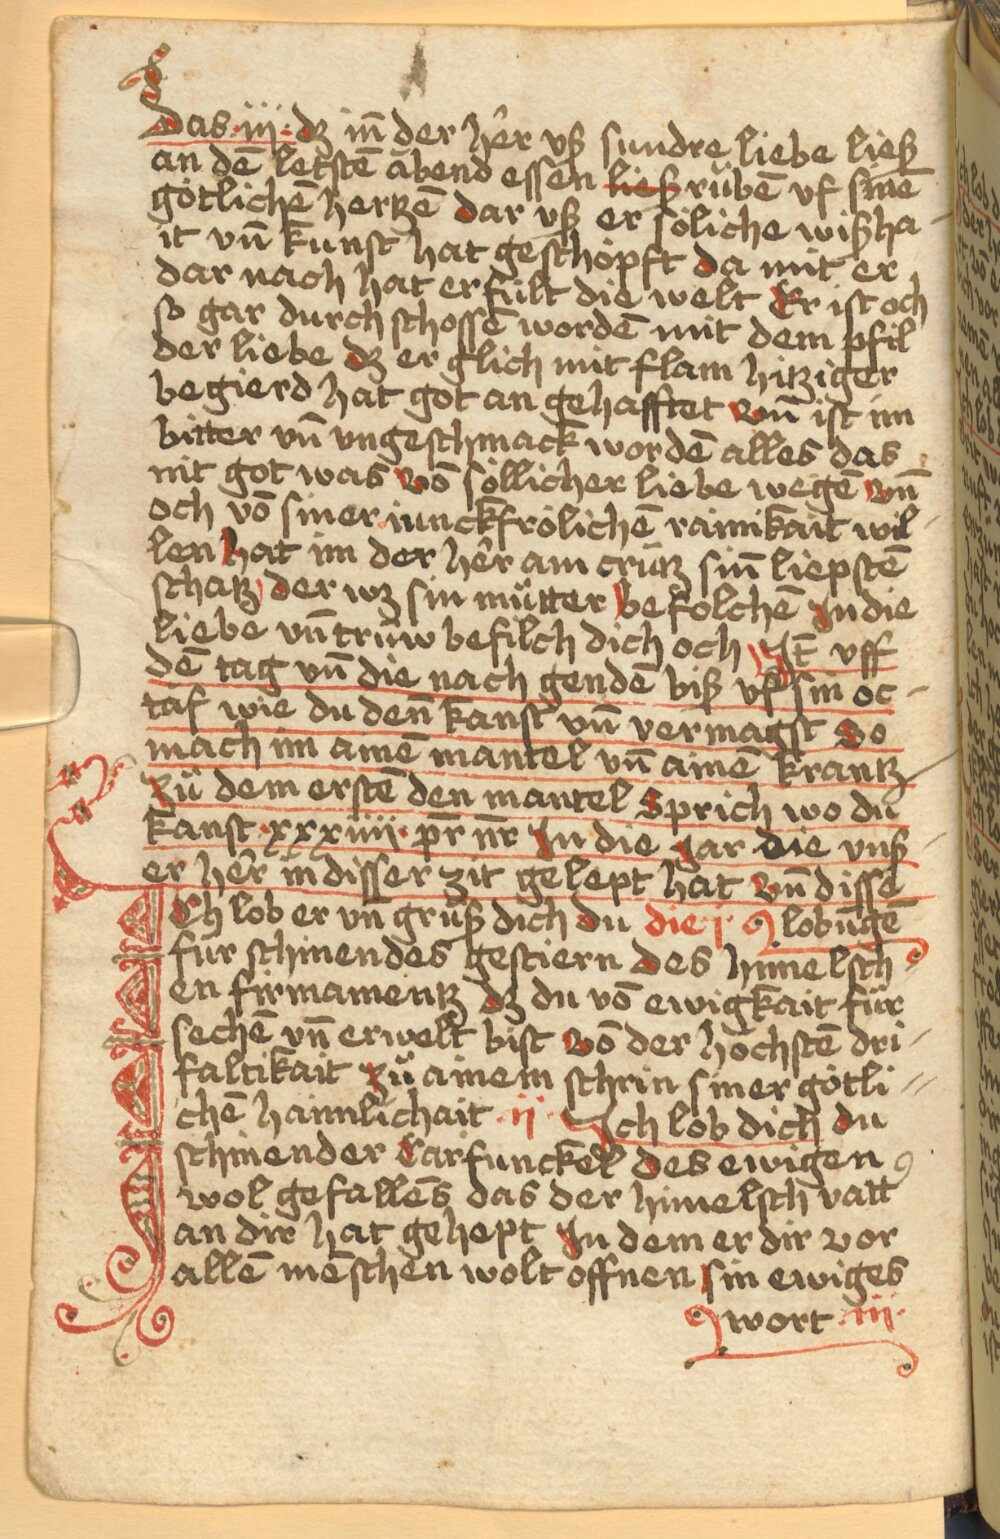 Das ·iij· dz in̄ der her̄ vß sundre liebe ließ
an dē letstē abend essen ließ růbē vf sinē
götlichē hertzē dar vß er söliche wißha-
it vn̄ kunst hat geschöpft da mit er
dar nach hat erfült die welt Er ist och
so gar durch schossē wordē mit dem pfil
der liebe dz er glich mit flam hitziger
begierd hat got an gehafftet vnn̄ ist im
bitter vn̄ vngeschmack wordē alles das
nit got was vō söllicher liebe wegē vnn̄
och vō siner junckfrölichē rainikait wil-
len hat im der her̄ am crütz sin̄ liepstē
schatz der wz sin můtter befolchē In die
liebe vn̄ trüw befilch dich och Jt̄ vff
dē tag vn̄ die nach gendē biß vf sin oc-
taf wie du den̄ kanst vn̄ vermagst So
mach im ainē mantel vn̄ ainē krantz
Zů dem erstē den mantel Sprich wo du
kanst ·xxxiiij· pr̄ nr̄ In die jar die vnß-
er her̄ in disser zit gelept hat vn̄ dissē
Ich lob er vn̄ grůß dich du die j lobungē
für schinendes gestiern des himelsch-
en firmamentz dz du vō ewigkait für
sechē vn̄ erwelt bist vō der höchstē dri-
faltikait zů ainem schrin siner götli-
chē hainlichait ·ij· Ich lob dich du
schinender Carfunckel des ewigen
wol gefallēs das der himelsch vatt
an dir hat gehept In dem er dir vor
allē mēschen wolt offnen sin ewiges
wort ·iij·